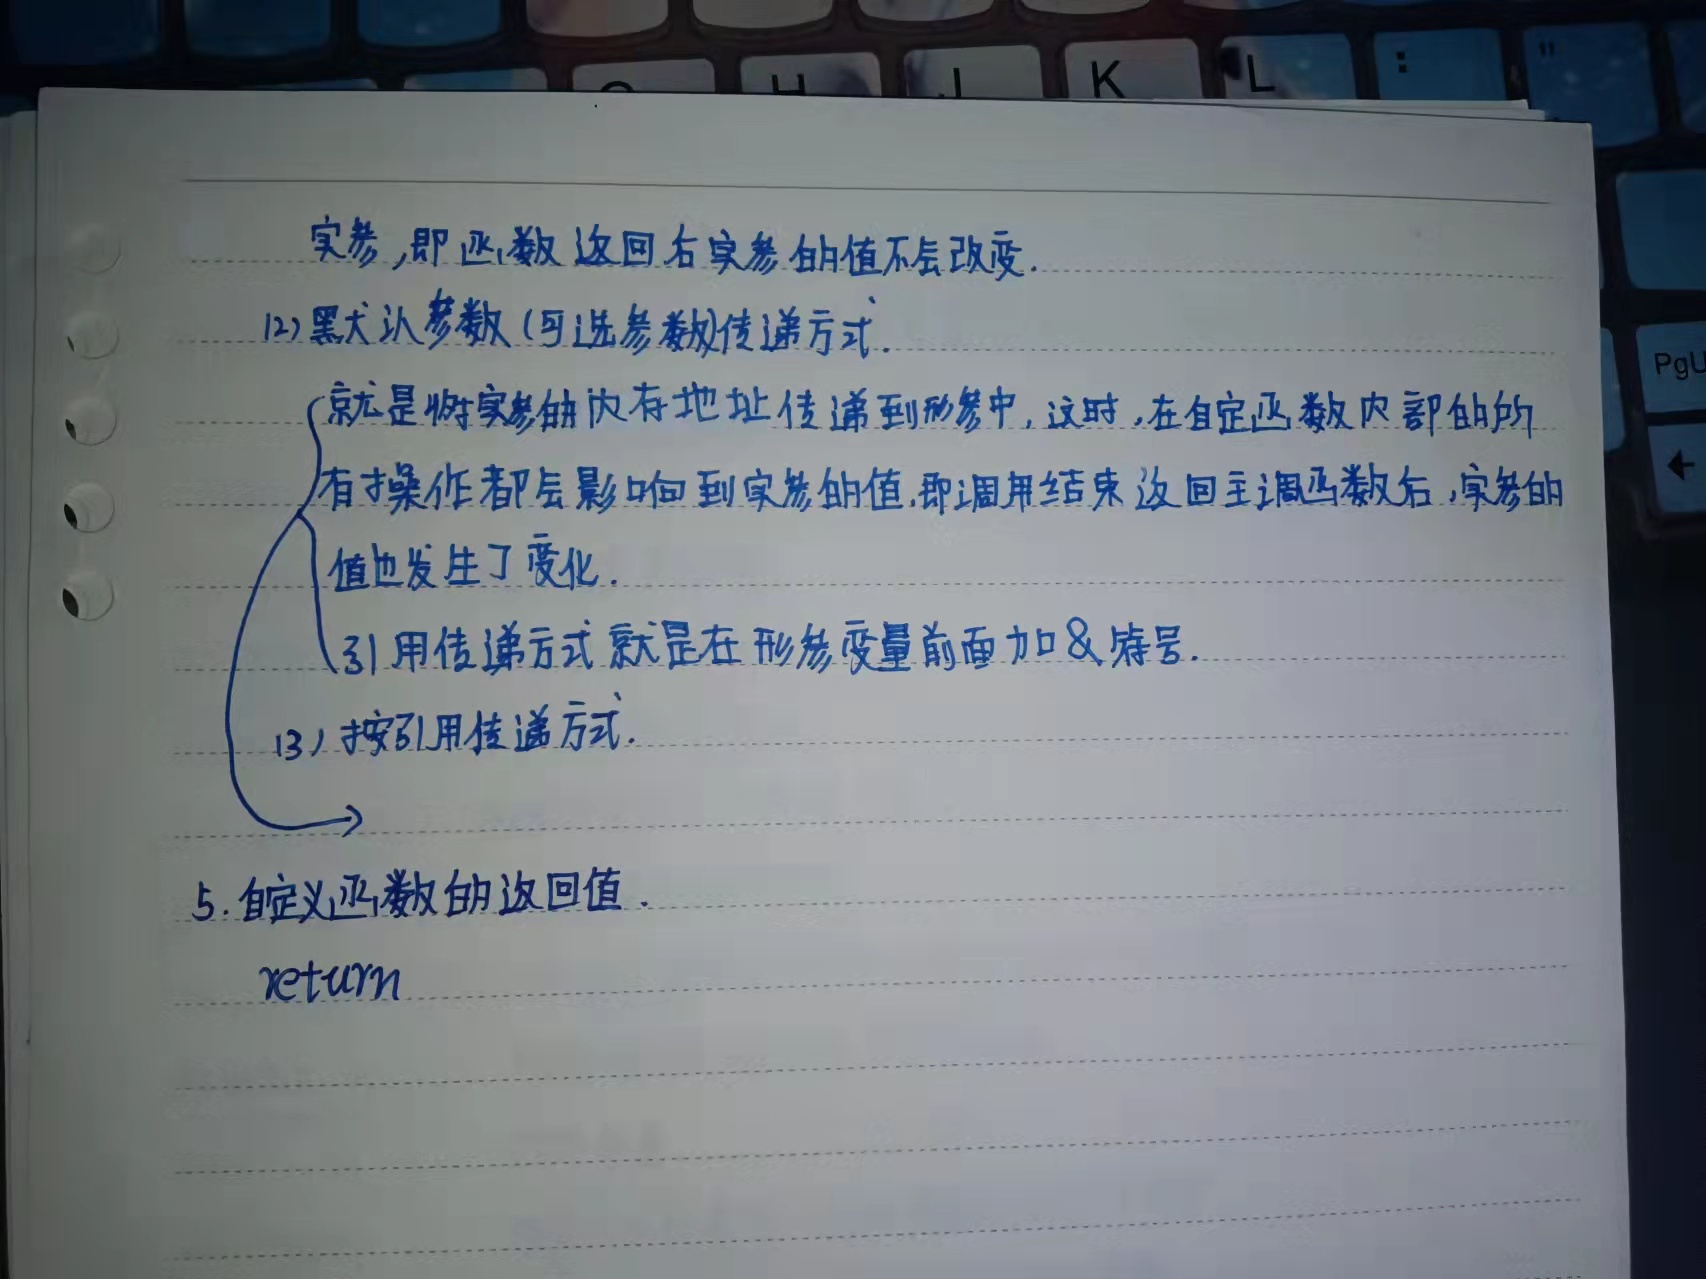 H J K L : "
PgU
←
实参,即函数返回后实参的值不会改变.
(2)默认参数(可选参数)传递方式.
就是将实参的内存地址传递到形参中,这时,在自定函数内部的所
有操作都会影响到实参的值.即调用结束返回主调函数后,实参的
值也发生了变化.
引用传递方式就是在形参变量前面加&符号.
(3)按引用传递方式.
5.自定义函数的返回值.
return